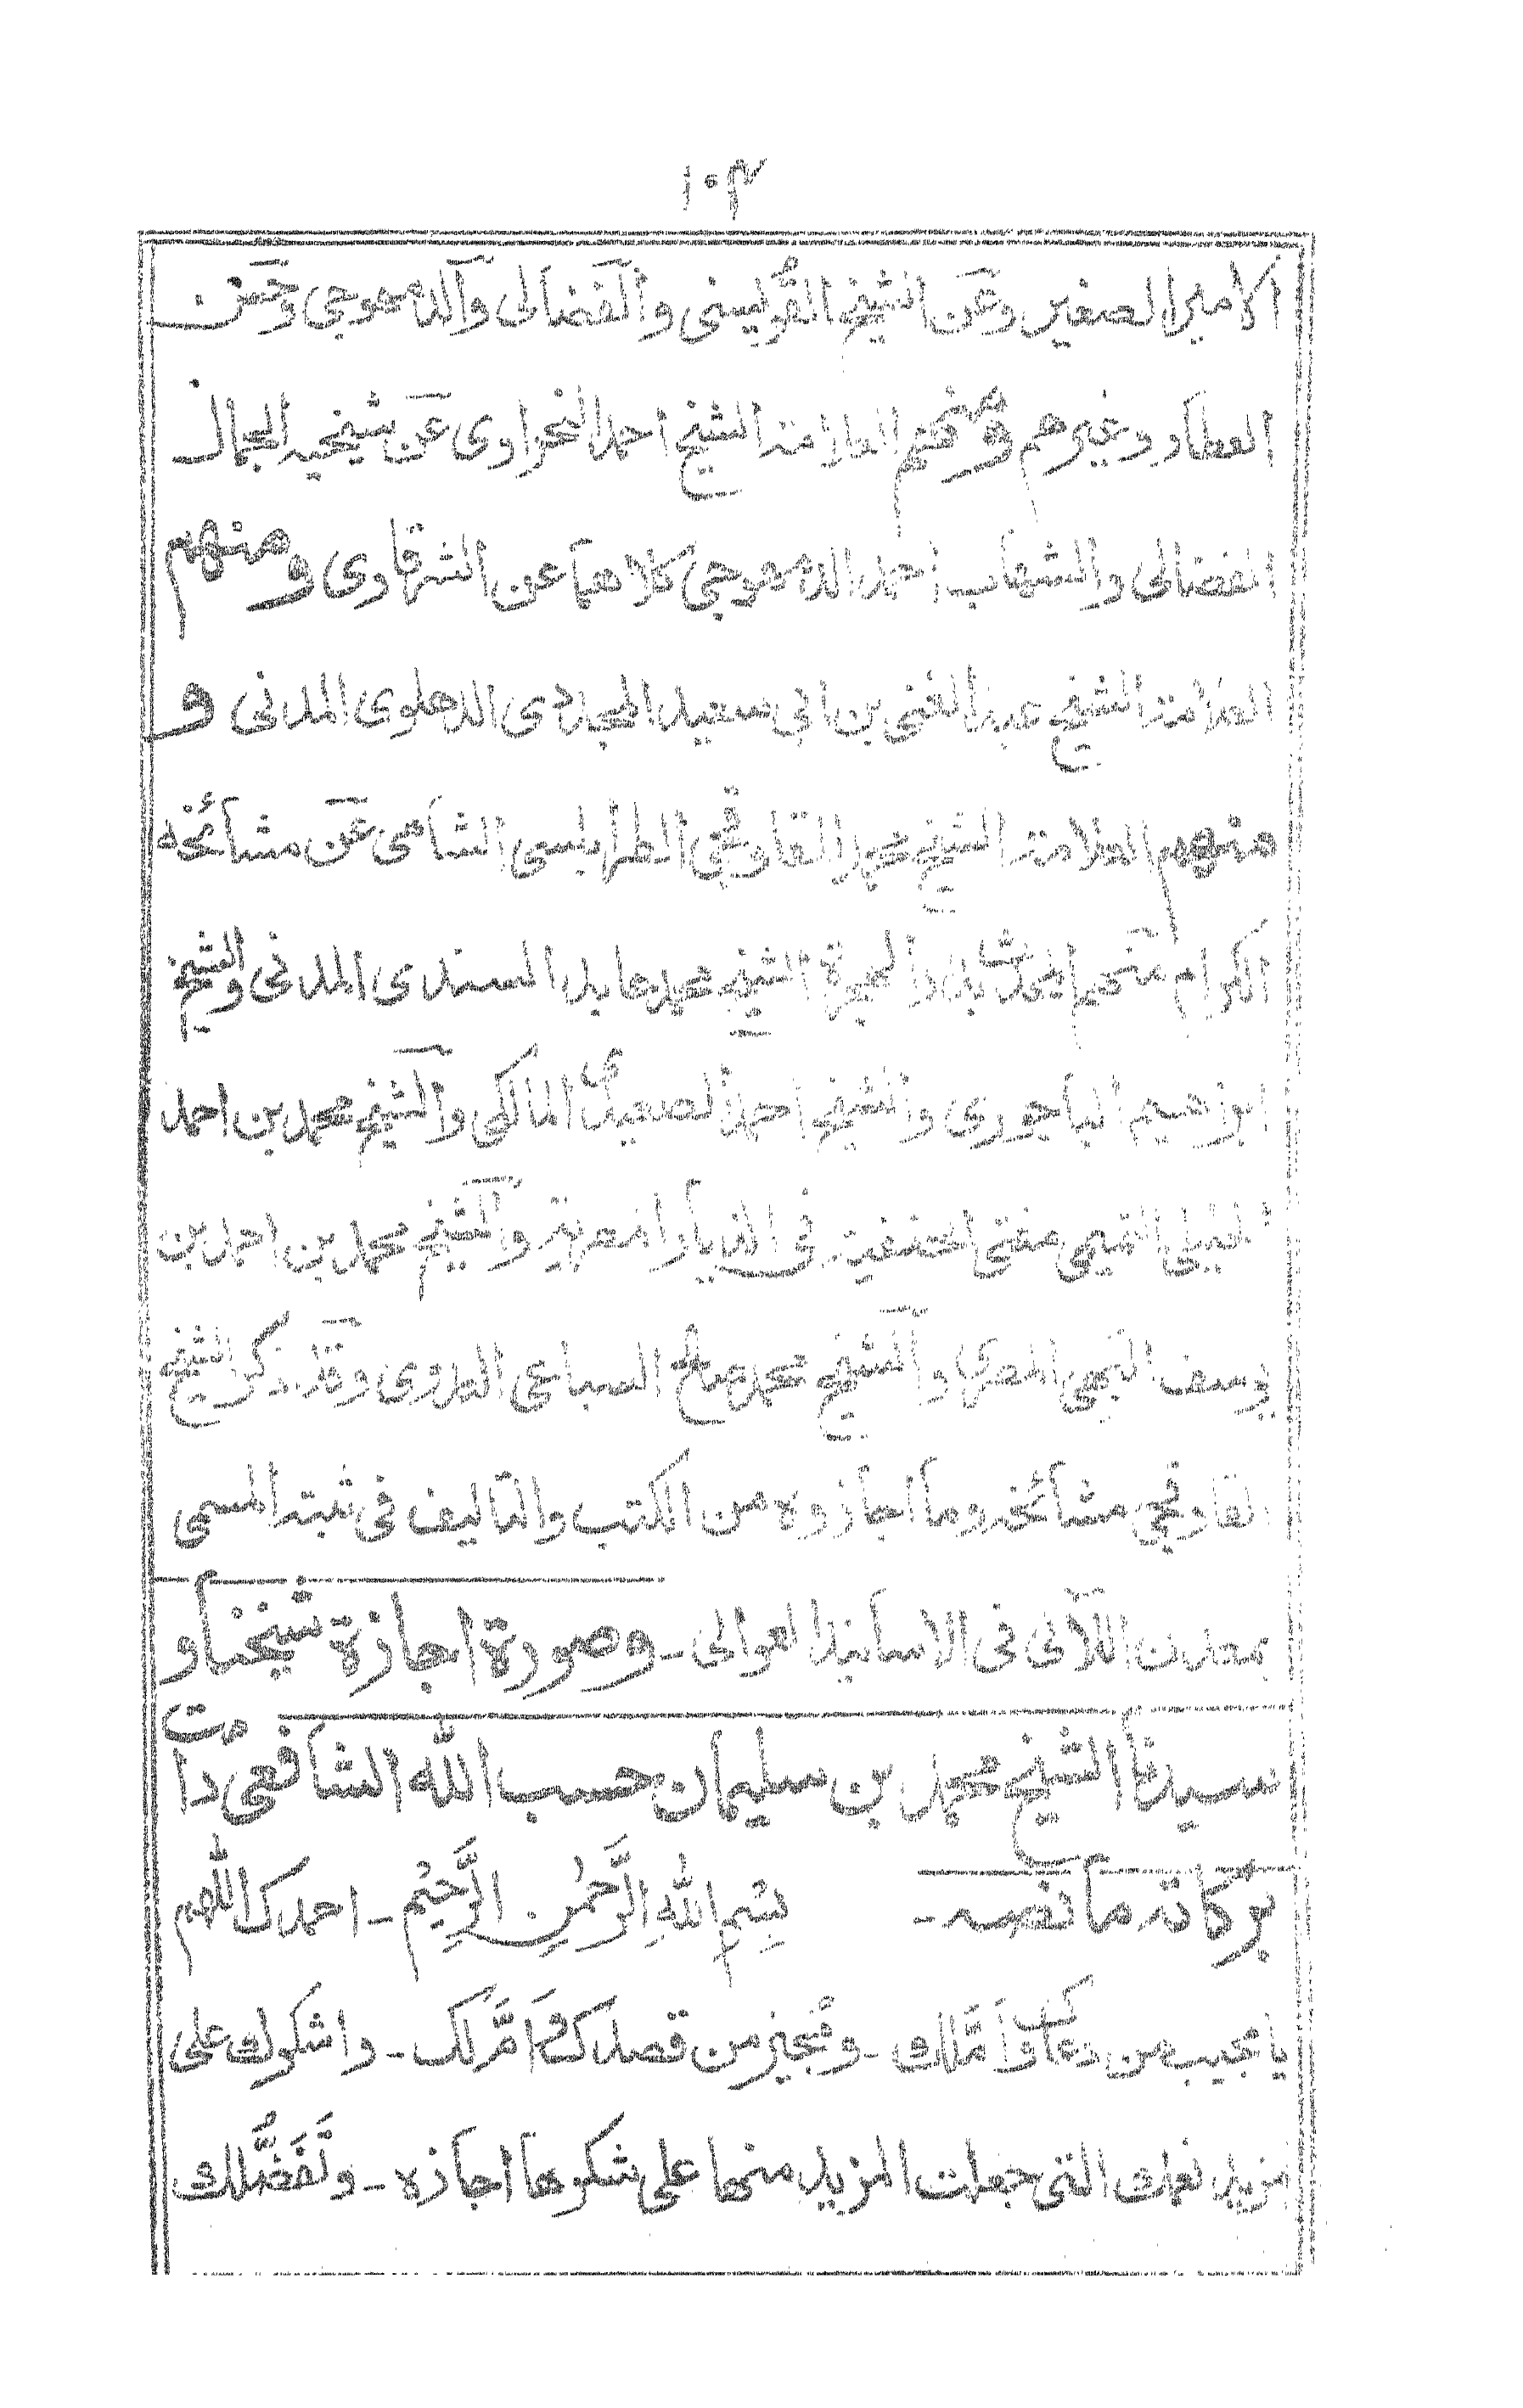 ١٠٣
الامير الصغير وعن الشيخ القويسنى والفضالى والدمهوجى وحسن
العطار وغيرهم ومنهم العلامة الشيخ احمد النحراوى عن شيخيه الجمال
الفضالى والشهاب احمد الدمهوجى كلاهما عن الشرقاوى ومنهم
العلامة الشيخ عبد الغنى بن ابى سعيد المجددى الدهلوى المدنى و
منهم العلامة الشيخ محمد القاوقجى الطرابلسى الشامى عن مشائخه
الكرام منهم المحدث بدار الهجرة الشيخ محمد عابد السندى المدنى والشيخ
ابراهيم الباجورى والشيخ احمد الصعيدى المالكى والشيخ محمد بن احمد
الخليلى التميمى مفتى الحنفية فى الديار المصرية والشيخ محمد بن احمد بن
يوسف البهى المصرى والشيخ محمد صالح السباعى العدوى وقد ذكر الشيخ
القاوقجى مشائخه وما اجازوه من الكتب والتاليف فى ثبته المسمى
بمعدن اللآلى فى الاسانيد العوالى ـ وصورة اجازة شيخنا و
سيدنا الشيخ محمد بن سليمان حسب الله الشافعى دامت
بركاته ما نصه ـ بِسْمِ اللهِ الرَّحْمٰنِ الرَّحِيْمِ ـ احمدك اللهم
يا مجيب من دعاك وَاَمَّلك ـ ومجيز من قصدك وَاَمَّ لك ـ واشكرك على
مزيد نعمك التى جعلت المزيد منها على شكرها اجازه ـ وتَفَضُّلك